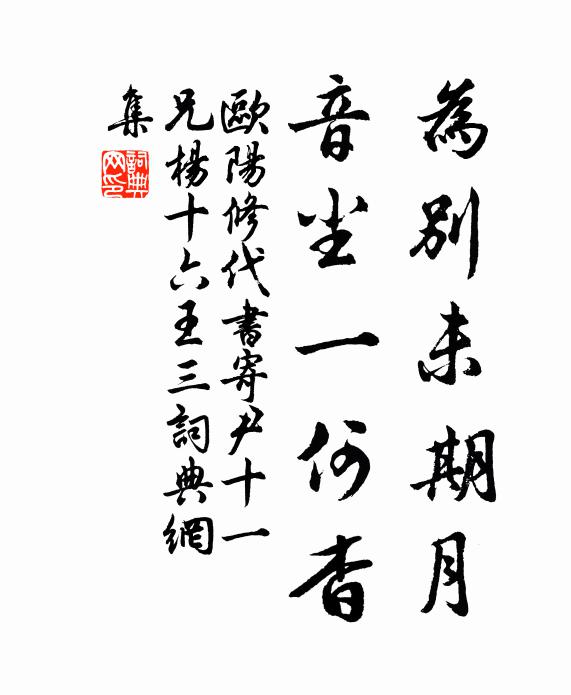 為別未期月
音尘一何杳
歐陽修代書寄尹十一
兄楊十六王三詞典網
集
詞典網印